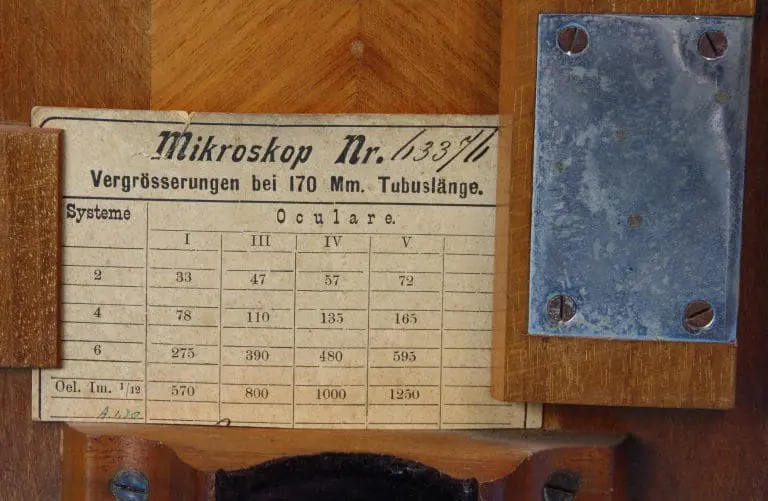 Mikroskop Nr.
Vergrösserungen bei 170 Mm. Tubuslänge.
Systeme Oculare.
I III IV V
2 33 47 57 72
4 78 110 135 165
6 275 390 480 595
Oel. Im. 1/12 570 800 1000 1250